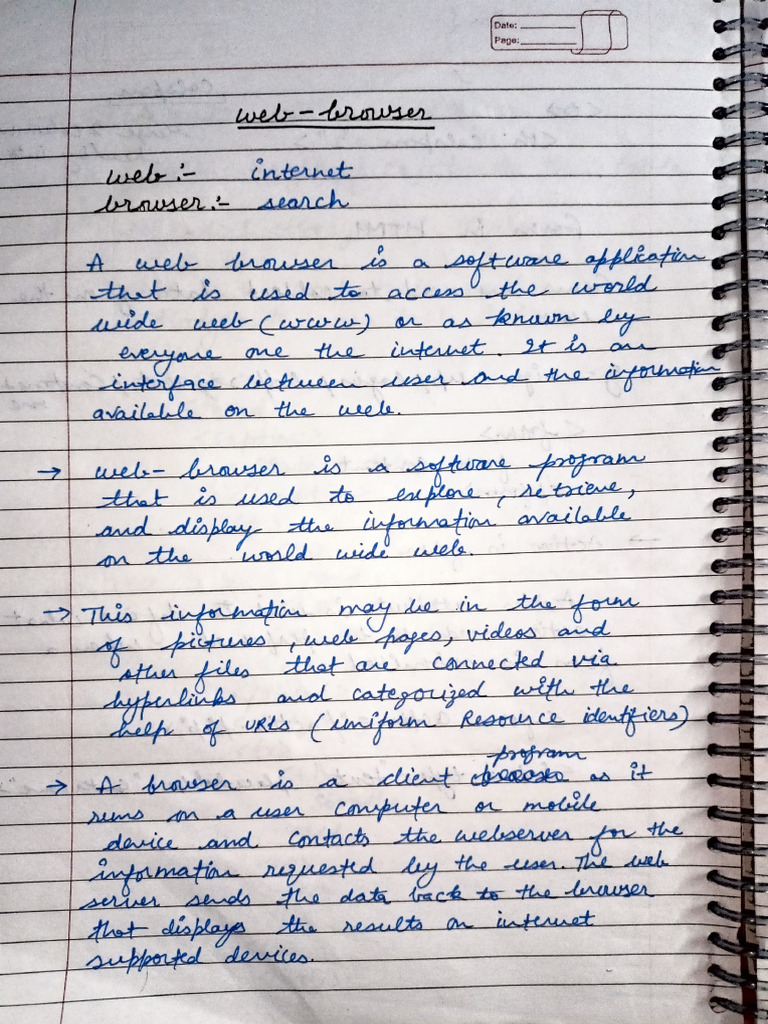 Date:
Page:
web-browser
web :- internet
browser :- search
A web browser is a software application
that is used to access the world
wide web (www) or as known by
everyone one the internet. It is an
interface between user and the information
available on the web.
→ web-browser is a software program
that is used to explore, retrieve,
and display the information available
on the world wide web.
→ This information may be in the form
of pictures, web pages, videos and
other files that are connected via
hyperlinks and categorized with the
help of URLs (uniform Resource identifiers)
program
→ A browser is a client as it
runs on a user computer or mobile
device and contacts the webserver for the
information requested by the user. The web
server sends the data back to the browser
that displays the results on internet
supported devices.